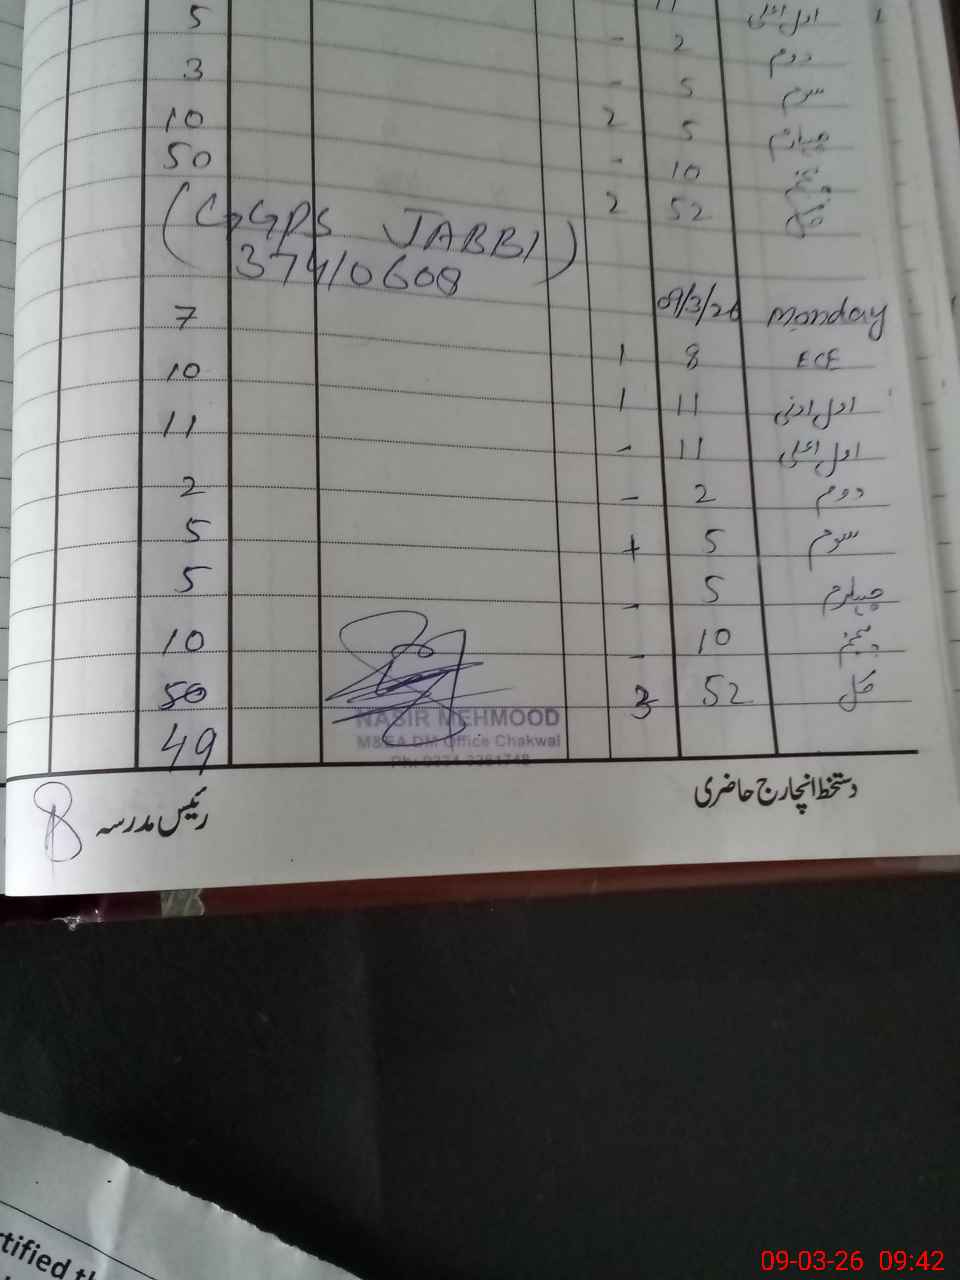 اول اعلیٰ
دوم 2 -
سوم 5 - 5
چہارم 5 2 3
پنجم 10 - 10
کل 52 2 50
(GGPS JABBI)
37410608
Monday 09/3/26
ECE 8 1 7
اول ادنی 11 1 10
اول اعلیٰ 11 - 11
دوم 2 - 2
سوم 5 + 5
چہارم 5 - 5
پنجم 10 - 10
کل 52 3 50
49
NASIR MEHMOOD
M&EA DM Office Chakwal
دستخط انچارج حاضری
رئیس مدرسہ
rtified th
09-03-26 09:42